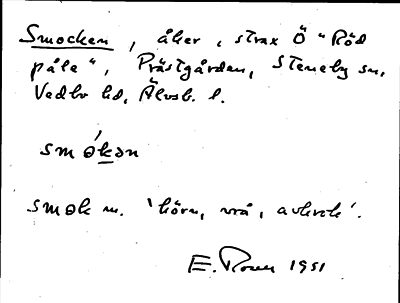 Smocken, åker, strax Ö "Röd
påle", Prästgården, Steneby sn,
Vedbo hd, Älvsb. l.
smókən
smok m. 'hörn, vrå, avkrok'.
E. Rosén 1951